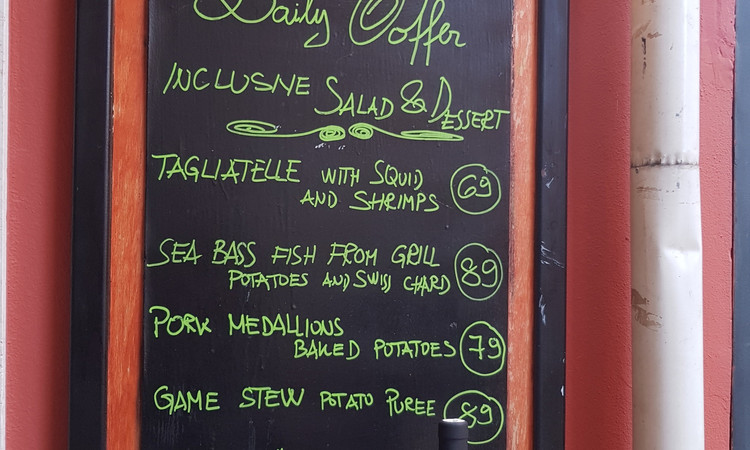 Daily Ooffer
INCLUSIVE SALAD & DESSERT
TAGLIATELLE WITH SQUID 69
AND SHRIMPS
SEA BASS FISH FROM GRILL 89
POTATOES AND SWISS CHARD
PORK MEDALLIONS
BAKED POTATOES 79
GAME STEW POTATO PUREE 89